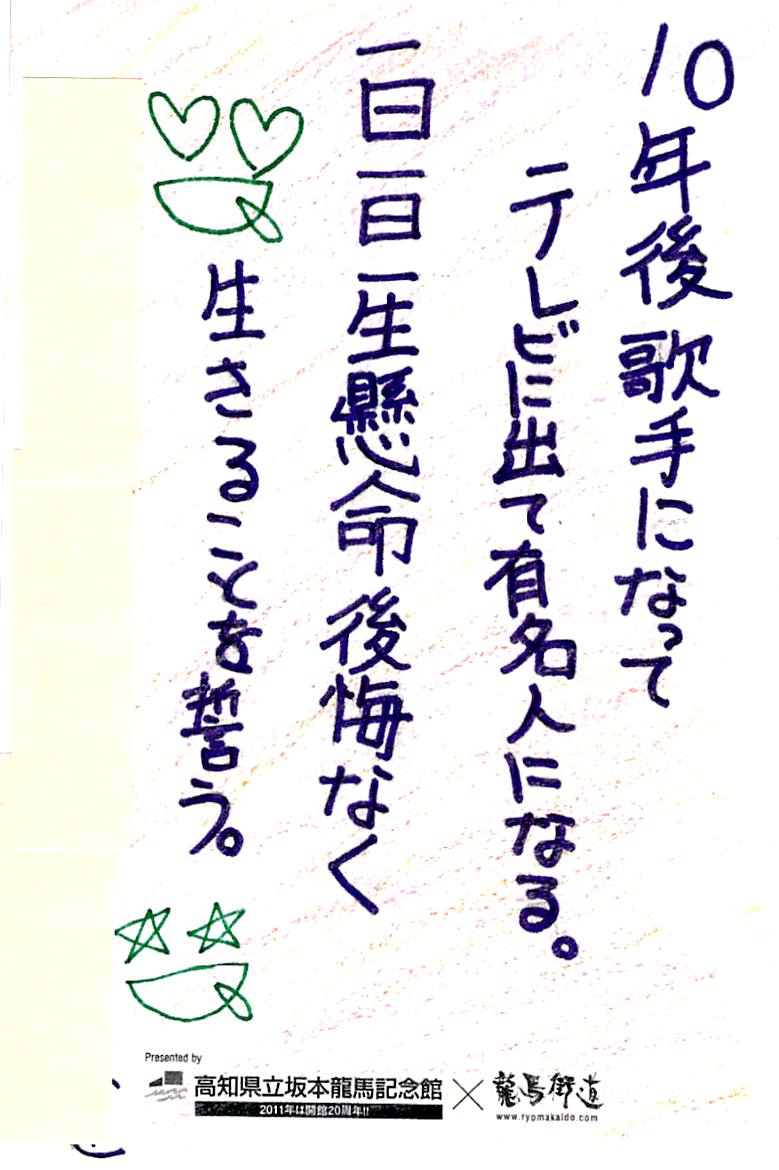 10年後歌手になって
テレビに出て有名人になる。
一日一日一生懸命後悔なく
生きることを誓う。
Presented by
高知県立坂本龍馬記念館
2011年は開館20周年!!
×
龍馬街道
www.ryomakaido.com